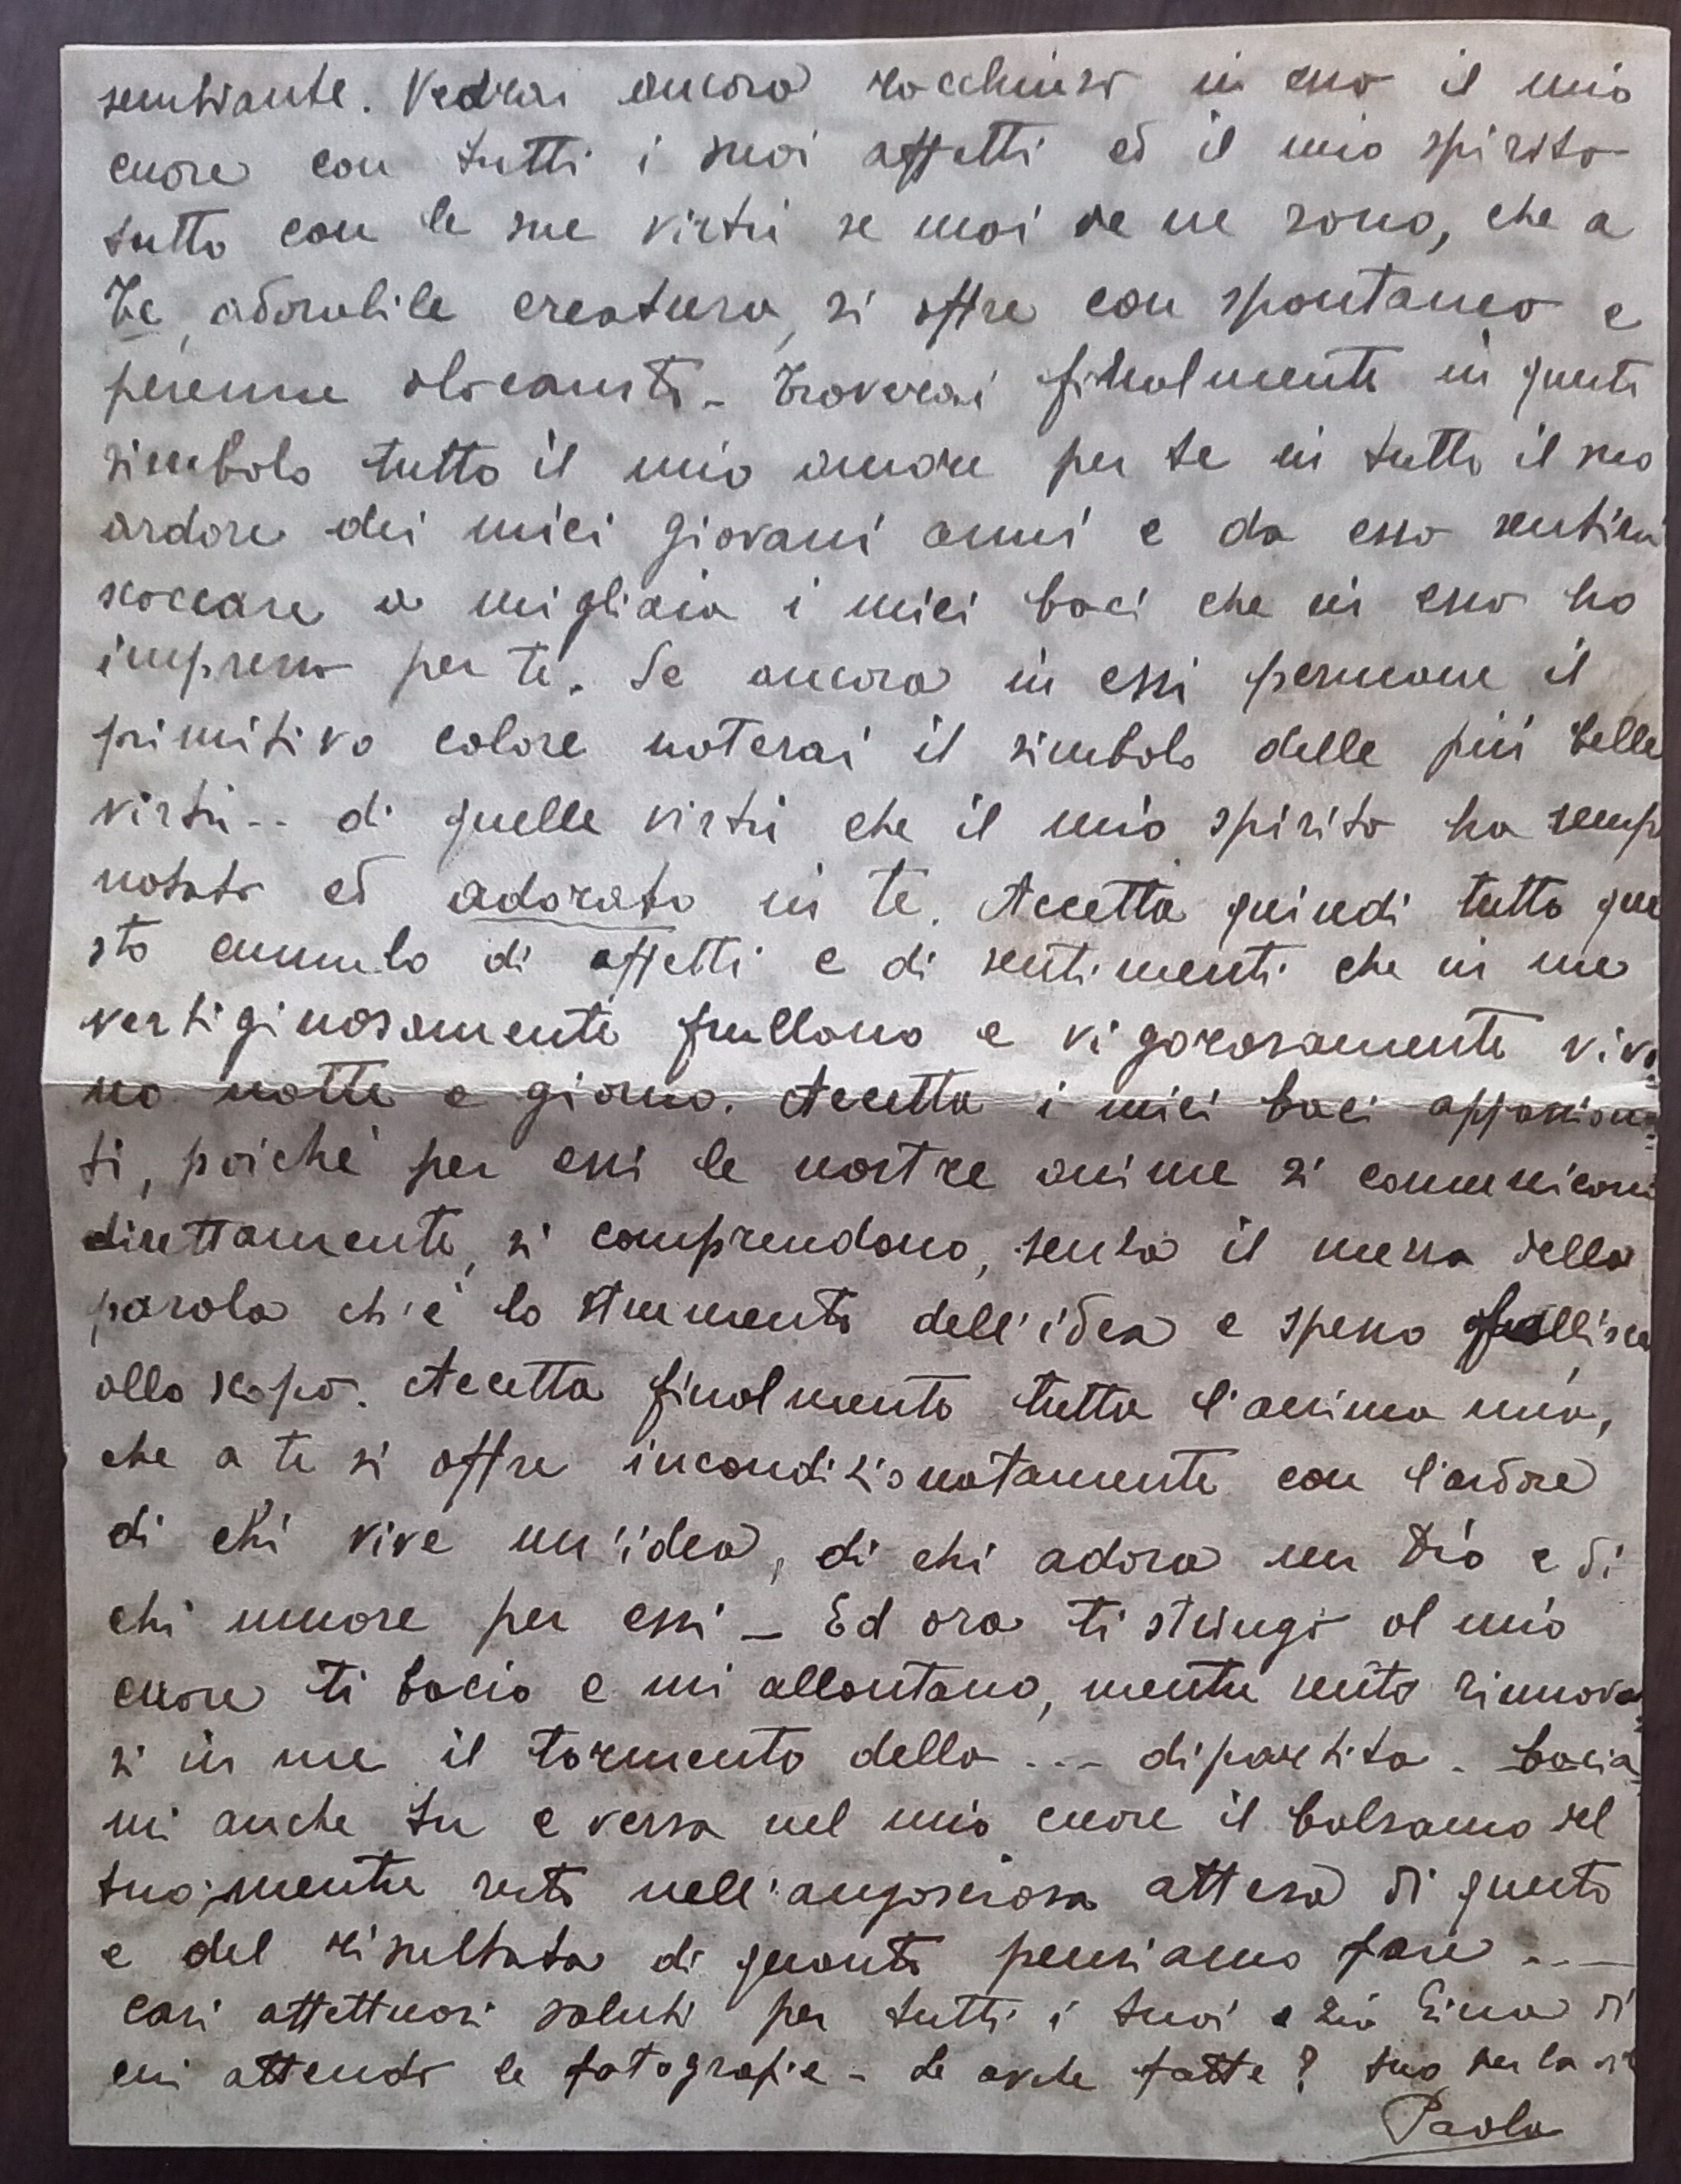 sembiante. Vedrai ancora racchiuso in esso il mio
cuore con tutti i suoi affetti ed il mio spirito
tutto con le sue virtù se mai ve ne sono, che a
Te, adorabile creatura, si offre con spontaneo e
perenne olocausto - Troverai finalmente in questo
simbolo tutto il mio amore per te in tutto il suo
ardore dei miei giovani anni e da esso sentirai
scoccare a migliaia i miei baci che in esso ho
impresso per te. Se ancora in essi permane il
primitivo colore noterai il simbolo delle più belle
virtù -- di quelle virtù che il mio spirito ha semp
notato ed adorato in te. Accetta quindi tutto que
sto cumulo di affetti e di sentimenti che in me
vertiginosamente frullano e vigorosamente vivo=
no notte e giorno. Accetta i miei baci appassiona=
ti, poiché per essi le nostre anime si comunicano
direttamente, si comprendono, senza il mezzo della
parola ch'è lo strumento dell'idea e spesso fallisce
allo scopo. Accetta finalmente tutta l'anima mia,
che a te si offre incondizionatamente con l'ardore
di chi vive un'idea, di chi adora un Dio e di
chi muore per essi - Ed ora ti stringo al mio
cuore ti bacio e mi allontano, mentre sento rinnovar=
si in me il tormento della ... dipartita. Bacia=
mi anche tu e versa nel mio cuore il balsamo del
tuo, mentre resto nell'angosciosa attesa di questo
e del risultato di quanto pensiamo fare ...
cari affettuosi saluti per tutti i tuoi e zia Gina di
cui attendo le fotografie - Le avete fatte? tuo per la
Paolo